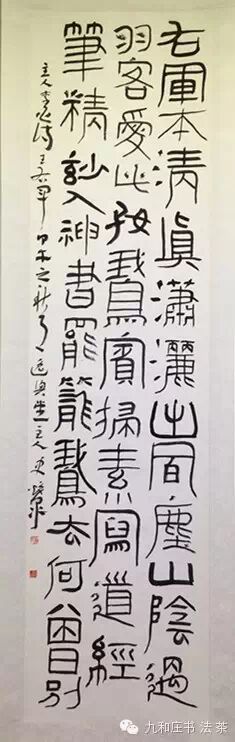 右軍本清真瀟灑出風塵山陰過
羽客愛此好鵝賓掃素寫道經
筆精妙入神書罷籠鵝去何曾別
主人 李白詩王右軍 甲午之秋月 主人
九和庄书法茶